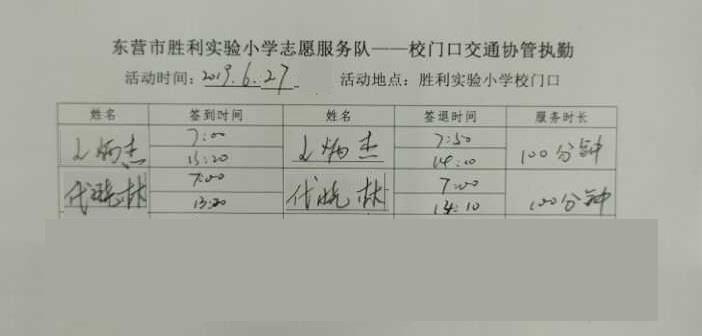 东营市胜利实验小学志愿服务队——校门口交通协管执勤
活动时间：2019.6.27 活动地点：胜利实验小学校门口
姓名 签到时间 姓名 签退时间 服务时长
7:00 7:50
炳杰 炳杰 100分钟
13:20 14:10
7:00 7:00
代晓林 代晓林 100分钟
13:20 14:10